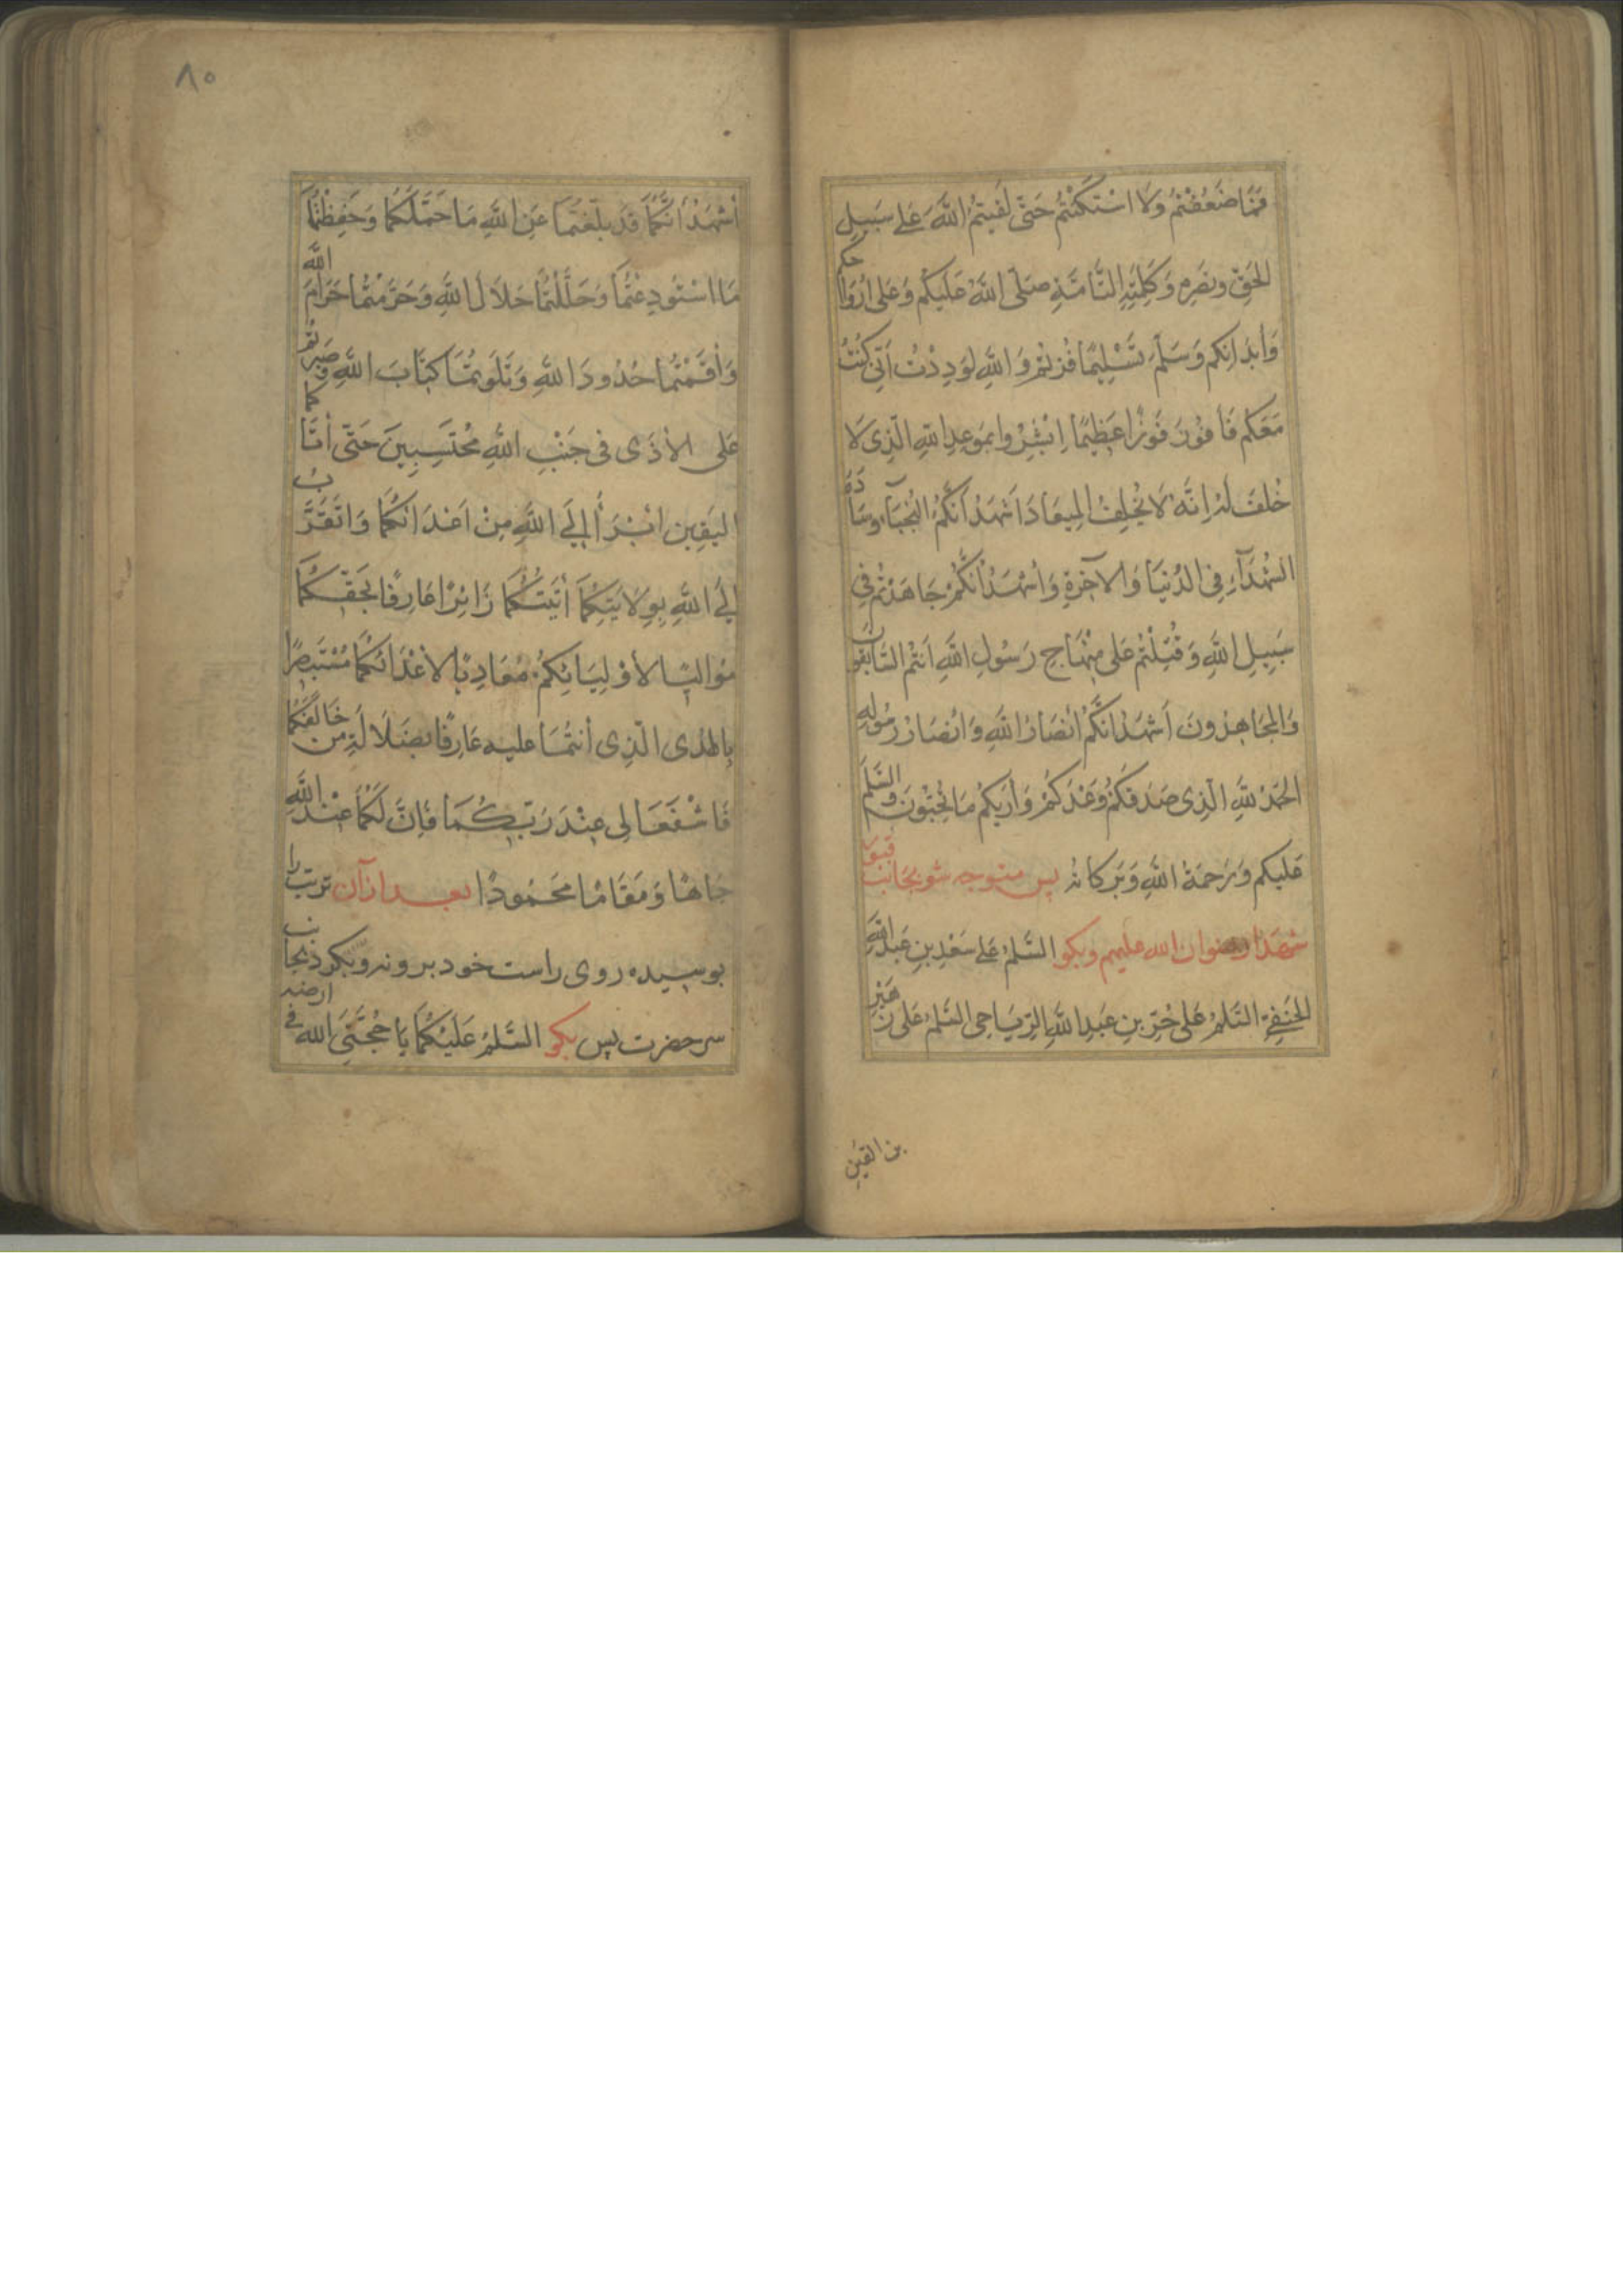 فَمَا ضَعُفْتُمْ وَلَا اسْتَكَنْتُمْ حَتّٰى لَقِيتُمُ اللّٰهَ عَلى سَبِيلِ
الحَقِّ ونَصْرِهِ وَكَلِمَتِهِ التَّامَّةِ صَلَّى اللّٰهُ عَلَيكُمْ وَعَلى اَرْوَاحِكُم
وَاَبْدَانِكُم وَسَلَّمَ تَسْلِيمًا فُزْتُمْ وَاللّٰهِ لَوَدِدْتُ اَنّى كُنْتُ
مَعَكُم فَاَفُوزَ فَوْزًا عَظِيمًا اِبْشِرُوا بمَوعِدِ اللّٰهِ الَّذِى لَا
خُلفَ لَهُ اِنَّهُ لَا يُخْلِفُ المِيعَادَ اَشْهَدُ اَنَّكُمُ النُّجَبَآءُ وسَادَةُ
الشُّهَدَآءِ فِى الدُّنْيَا وَالآخِرَةِ وَاَشْهَدُ اَنَّكُمْ جَاهَدْتُمْ فِى
سَبِيلِ اللّٰهِ وَقُتِلْتُمْ عَلى مِنْهَاجِ رَسُولِ اللّٰهِ اَنْتُمُ السَّابِقُونَ
وَالمُجَاهِدُونَ اَشْهَدُ اَنَّكُمْ اَنْصَارُ اللّٰهِ وَاَنْصَارُ رَسُولِهِ
الحَمْدُ لِلّٰهِ الَّذِى صَدَقَكُمْ وَعْدَكُمْ وَاَرٰيكُمْ مَا تُحِبُّونَ وَالسَّلٰمُ
عَليكم وَرَحمَةُ اللّٰهِ وَبَرَكاتُهُ پس متوجه شو بجانب قبور
شهدا رضوان الله عليهم وبگو السَّلٰمُ عَلى سَعْدِ بنِ عَبدِ اللّٰهِ
الحَنَفِىِّ السَّلٰمُ عَلى حُرِّ بنِ عَبدِ اللّٰهِ الرِّيَاحِى السَّلٰمُ عَلى زُهَيْرِ
بن القين
٨٥
اَشْهَدُ اَنَّكُمَا قَد بلَّغْتُمَا عَنِ اللّٰهِ مَا حَمَّلَكُمَا وَحَفِظْتُمَا
مَا اسْتُودِعْتُمَا وَحَلَّلْتُمَا حَلَالَ اللّٰهِ وَحَرَّمْتُمَا حَرَامَ اللّٰهِ
وَأَقَمْتُمَا حُدُودَ اللّٰهِ وَتَلَوتُمَا كِتَابَ اللّٰهِ وَصَبَرْتُمَا
عَلى الأَذَى فى جَنْبِ اللّٰهِ مُحْتَسِبِينَ حَتّى أَتَا كما
اليَقِين اَبْرَأُ اِلَى اللّٰهِ مِنْ اَعْدَائكُمَا وَاَتَقَرَّبُ
اِلَى اللّٰهِ بِوِلَايَتِكُمَا أَتَيْتُكُمَا زَائِرًا عَارِفًا بحَقِّكُمَا
مُوَالِيًا لأَوْلِيَائِكُمْ مُعَادِيًا لأَعْدَائكُمَا مُسْتَبْصِرًا
بِالهُدى الَّذِى أَنتُمَا عليه عَارِفًا بضَلَالَةِ مَن خَالَفَكُمَا
فَاشْفَعَا لِى عِنْدَ رَبِّكُمَا فَاِنَّ لَكُمَا عِنْدَ اللّٰهِ
جَاهًا وَمَقَامًا مَحْمُودًا بعد ازآن تربت را
بوسيده روى راست خود برو نه وبگرد بجانب
سر حضرت پس بگو السَّلٰمُ عَلَيْكُمَا يَا حُجَّتَىِ الله فى ارضه